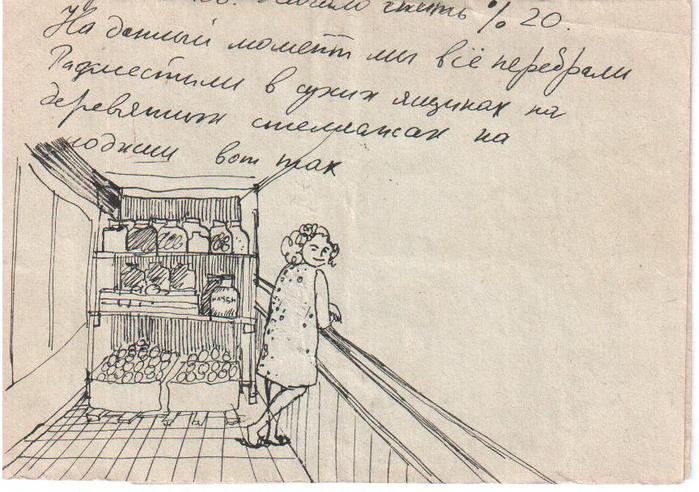 гнить % 20.
На данный момент мы всё перебрали
Разместили в сухих ящиках на
деревянных стеллажах на
лоджии вот так